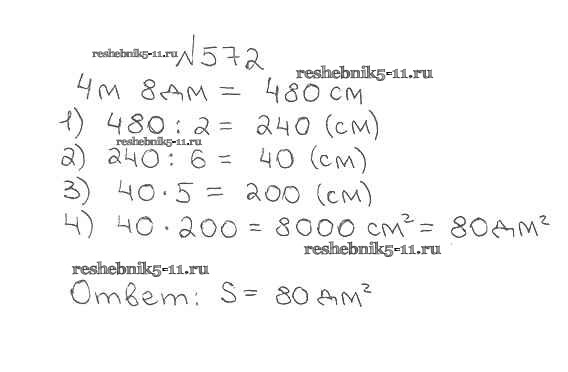 reshebnik5-11.ru №572
reshebnik5-11.ru
4м 8дм = 480 см
1) 480 : 2 = 240 (см)
reshebnik5-11.ru
2) 240 : 6 = 40 (см)
3) 40 · 5 = 200 (см)
4) 40 · 200 = 8000 см² = 80 дм²
reshebnik5-11.ru
reshebnik5-11.ru
Ответ: S = 80 дм²